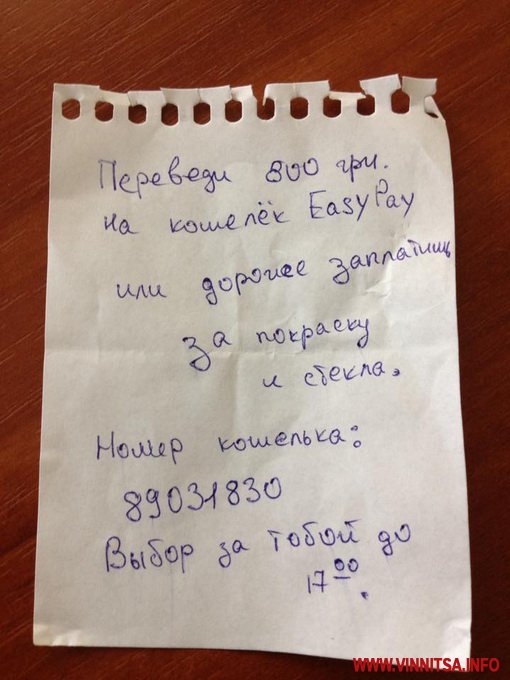 Переведи 800 грн.
на кошелёк EasyPay
или дороже заплатишь
за покраску
и стекла.
Номер кошелька:
89031830
Выбор за тобой до
17 00.
WWW.VINNITSA.INFO